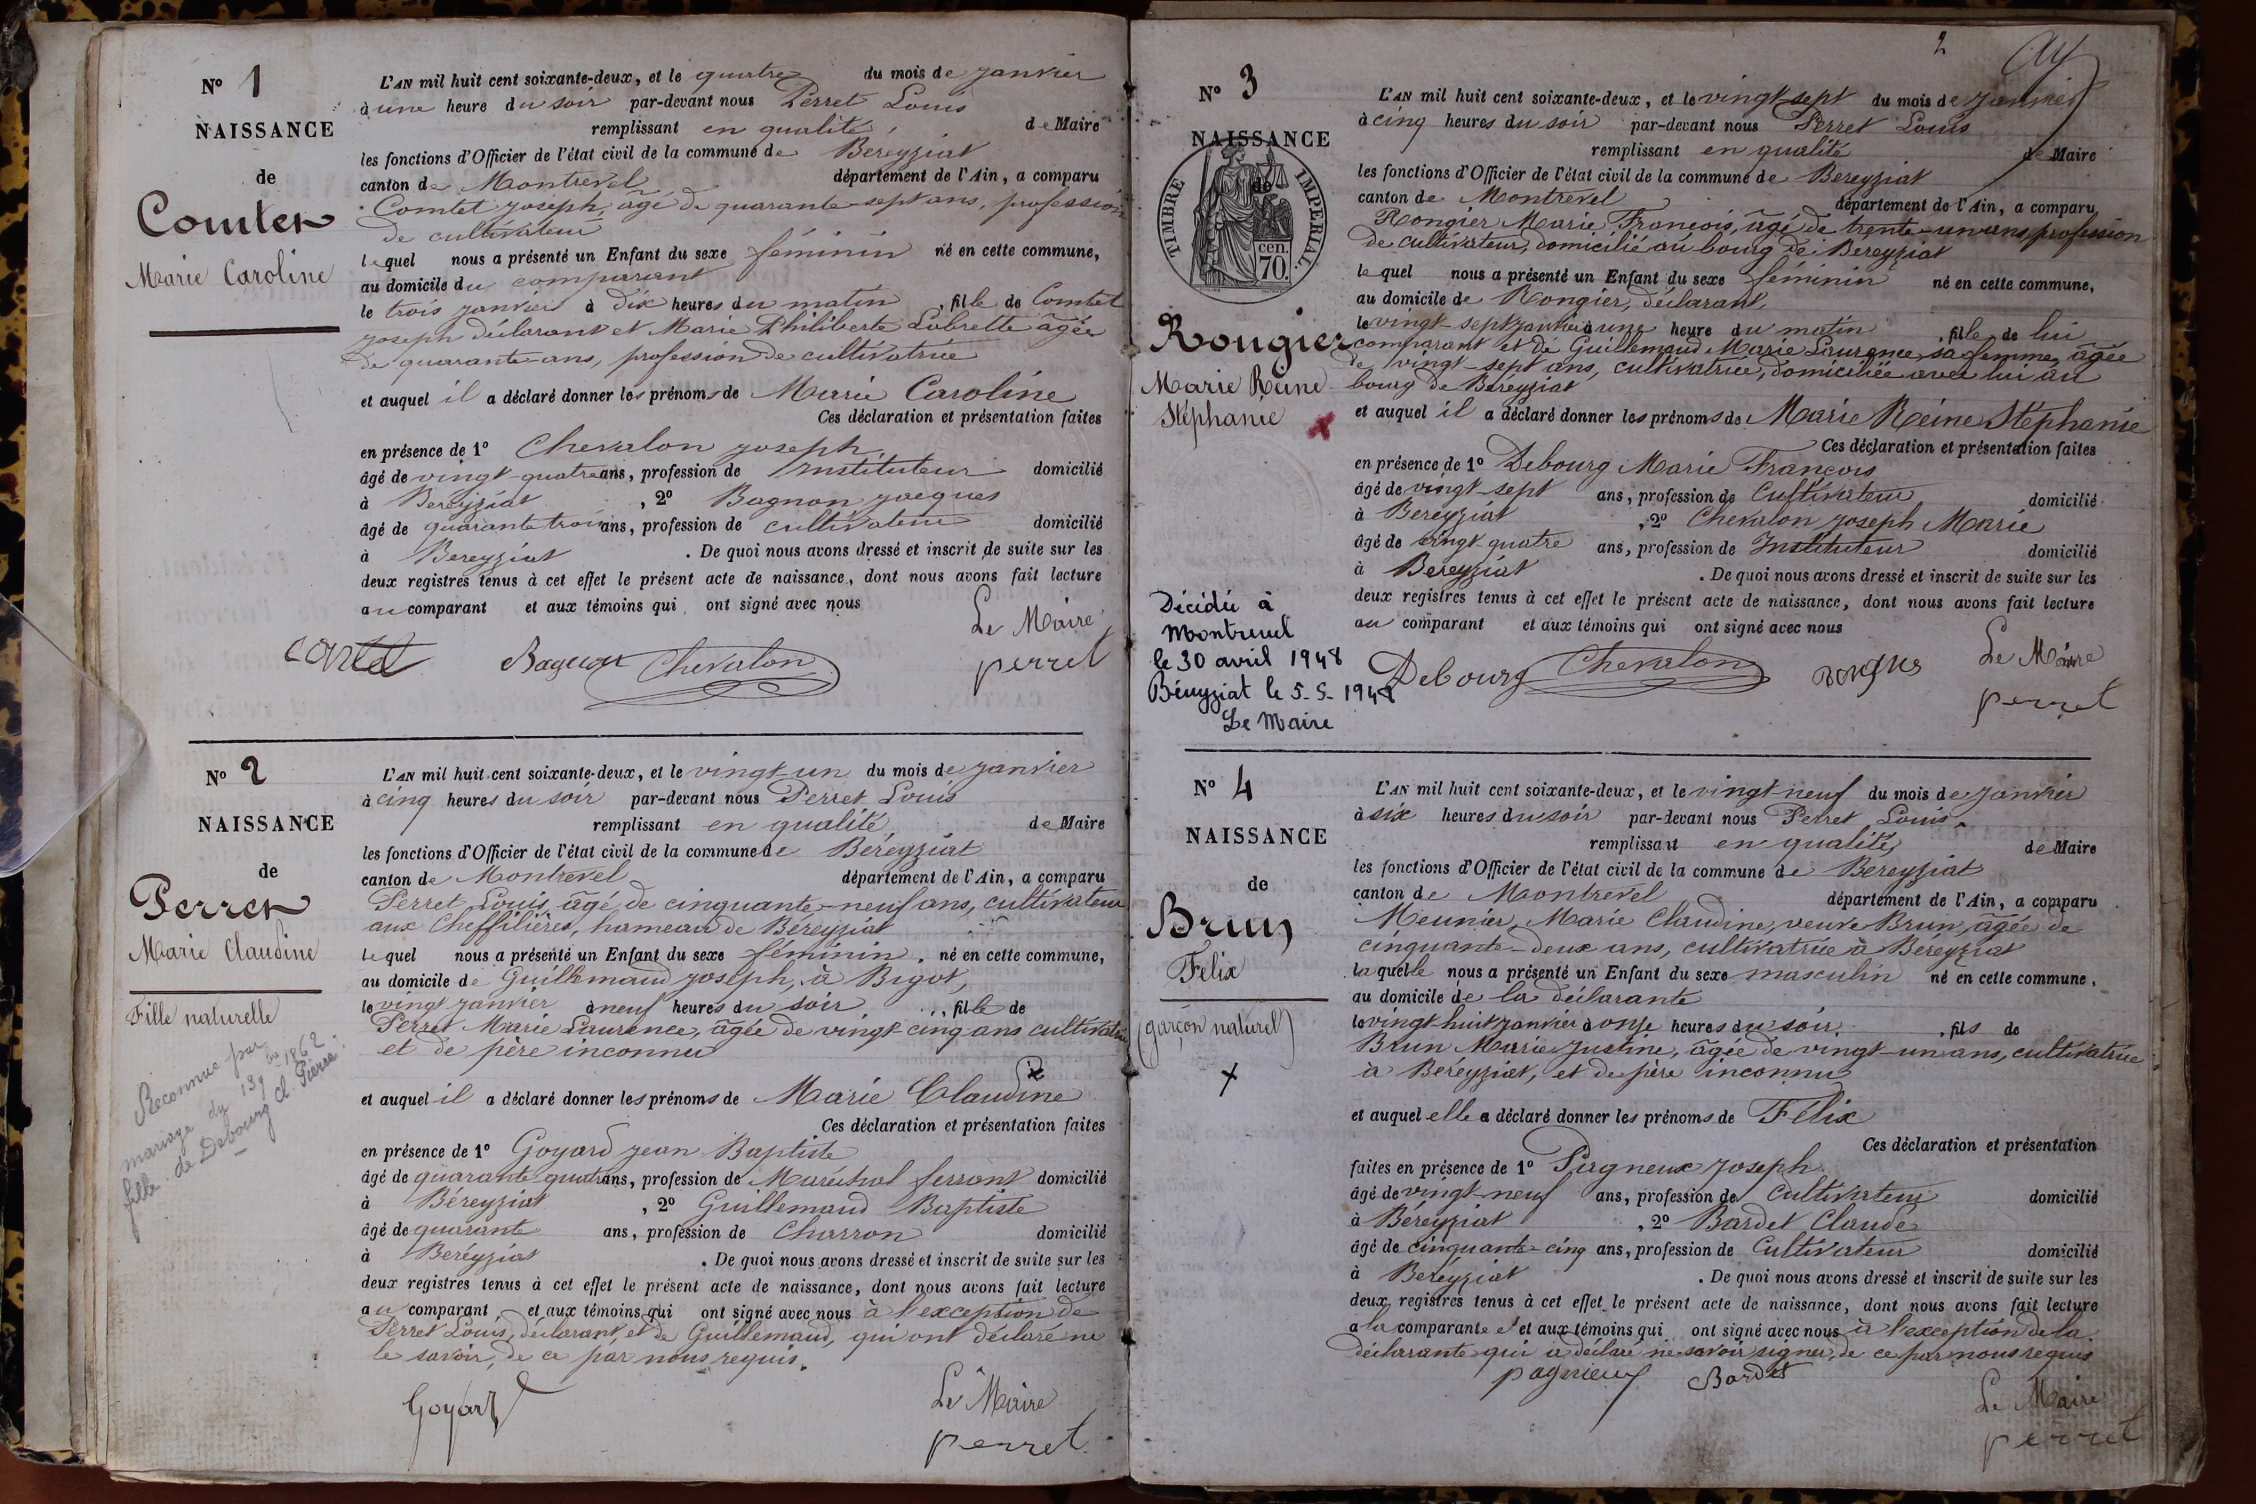 N° 1
NAISSANCE
de
Comtet
Marie Caroline
L'AN mil huit cent soixante-deux, et le quatre du mois de janvier
à une heure du soir par-devant nous Perret Louis
remplissant en qualité de Maire
les fonctions d'Officier de l'état civil de la commune de Bereyziat
canton de Montrevel département de l'Ain, a comparu
Comtet joseph, âgé de quarante-sept ans, profession
de cultivateur
lequel nous a présenté un Enfant du sexe féminin né en cette commune,
au domicile du comparant
le trois janvier à dix heures du matin, fille de Comtet
joseph déclarant et Marie Philiberte Lobrette âgée
de quarante ans, profession de cultivatrice
et auquel il a déclaré donner les prénoms de Marie Caroline
Ces déclaration et présentation faites
en présence de 1° Chevalon joseph,
âgé de vingt-quatre ans, profession de Instituteur domicilié
à Bereyziat, 2° Bagnon jacques
âgé de quarante trois ans, profession de cultivateur domicilié
à Bereyziat. De quoi nous avons dressé et inscrit de suite sur les
deux registres tenus à cet effet le présent acte de naissance, dont nous avons fait lecture
au comparant et aux témoins qui ont signé avec nous
Le Maire
Bagnon Chevalon perret
N° 2
NAISSANCE
de
Perret
Marie Claudine
Fille naturelle
Reconnue par
mariage du 13 9bre 1862
fille de Debourg Cl. Pierre.
L'AN mil huit cent soixante-deux, et le vingt-un du mois de janvier
à cinq heures du soir par-devant nous Perret Louis
remplissant en qualité de Maire
les fonctions d'Officier de l'état civil de la commune de Béreyziat
canton de Montrevel département de l'Ain, a comparu
Perret Louis, âgé de cinquante-neuf ans, cultivateur
aux Cheffilières, hameau de Béreyziat
lequel nous a présenté un Enfant du sexe féminin. né en cette commune,
au domicile de Guillemaud joseph, à Bigot,
le vingt janvier à neuf heures du soir, fille de
Perret Marie Laurence, âgée de vingt-cinq ans cultivatrice
et de père inconnu
et auquel il a déclaré donner les prénoms de Marie Claudine
Ces déclaration et présentation faites
en présence de 1° Goyard jean Baptiste
âgé de quarante quatre ans, profession de Maréchal ferrant domicilié
à Béreyziat, 2° Guillemaud Baptiste
âgé de quarante ans, profession de Charron domicilié
à Béreyziat. De quoi nous avons dressé et inscrit de suite sur les
deux registres tenus à cet effet le présent acte de naissance, dont nous avons fait lecture
au comparant et aux témoins qui ont signé avec nous à l'exception de
Perret Louis, déclarant, et de Guillemaud, qui ont déclaré ne
le savoir, de ce par nous requis.
Goyard Le Maire
perret
2
N° 3
NAISSANCE
de
TIMBRE IMPERIAL
cen.
70.
Rougier
Marie Reine
Stéphanie
Décédée à
Montrevel
le 30 avril 1948
Béreyziat le 5-5-1948
Le Maire
L'AN mil huit cent soixante-deux, et le vingt sept du mois de janvier
à cinq heures du soir par-devant nous Perret Louis
remplissant en qualité de Maire
les fonctions d'Officier de l'état civil de la commune de Bereyziat
canton de Montrevel département de l'Ain, a comparu
Rongier Marie François, âgé de trente-un ans, profession
de cultivateur, domicilié au bourg de Bereyziat
lequel nous a présenté un Enfant du sexe féminin né en cette commune,
au domicile de Rongier, déclarant,
le vingt-sept janvier à une heure du matin, fille de lui
comparant et de Guillemaud Marie Laurence, sa femme, âgée
de vingt-sept ans, cultivatrice, domiciliée avec lui au
bourg de Béreyziat
et auquel il a déclaré donner les prénoms de Marie Reine Stéphanie
Ces déclaration et présentation faites
en présence de 1° Debourg Marie François
âgé de vingt-sept ans, profession de Cultivateur domicilié
à Bereyziat, 2° Chevalon joseph Marie
âgé de vingt-quatre ans, profession de Instituteur domicilié
à Bereyziat. De quoi nous avons dressé et inscrit de suite sur les
deux registres tenus à cet effet le présent acte de naissance, dont nous avons fait lecture
au comparant et aux témoins qui ont signé avec nous
Le Maire
Debourg Chevalon perret
N° 4
NAISSANCE
de
Brun
Félix
(garçon naturel)
L'AN mil huit cent soixante-deux, et le vingt neuf du mois de janvier
à six heures du soir par-devant nous Perret Louis
remplissant en qualité de Maire
les fonctions d'Officier de l'état civil de la commune de Bereyziat
canton de Montrevel département de l'Ain, a comparu
Meunier, Marie Claudine, veuve Brun, âgée de
cinquante-deux ans, cultivatrice à Bereyziat
laquelle nous a présenté un Enfant du sexe masculin né en cette commune,
au domicile de la déclarante
le vingt-huit janvier à onze heures du soir, fils de
Brun Marie Justine, âgée de vingt-un ans, cultivatrice
à Béreyziat, et de père inconnu
et auquel elle a déclaré donner les prénoms de Félix
Ces déclaration et présentation
faites en présence de 1° Pagneux Joseph
âgé de vingt-neuf ans, profession de Cultivateur domicilié
à Béreyziat, 2° Bardet Claude
âgé de cinquante-cinq ans, profession de Cultivateur domicilié
à Béreyziat. De quoi nous avons dressé et inscrit de suite sur les
deux registres tenus à cet effet le présent acte de naissance, dont nous avons fait lecture
a la comparante et aux témoins qui ont signé avec nous à l'exception de la
déclarante qui a déclaré ne savoir signer, de ce par nous requis
pagnieux Bardet
Le Maire
perret